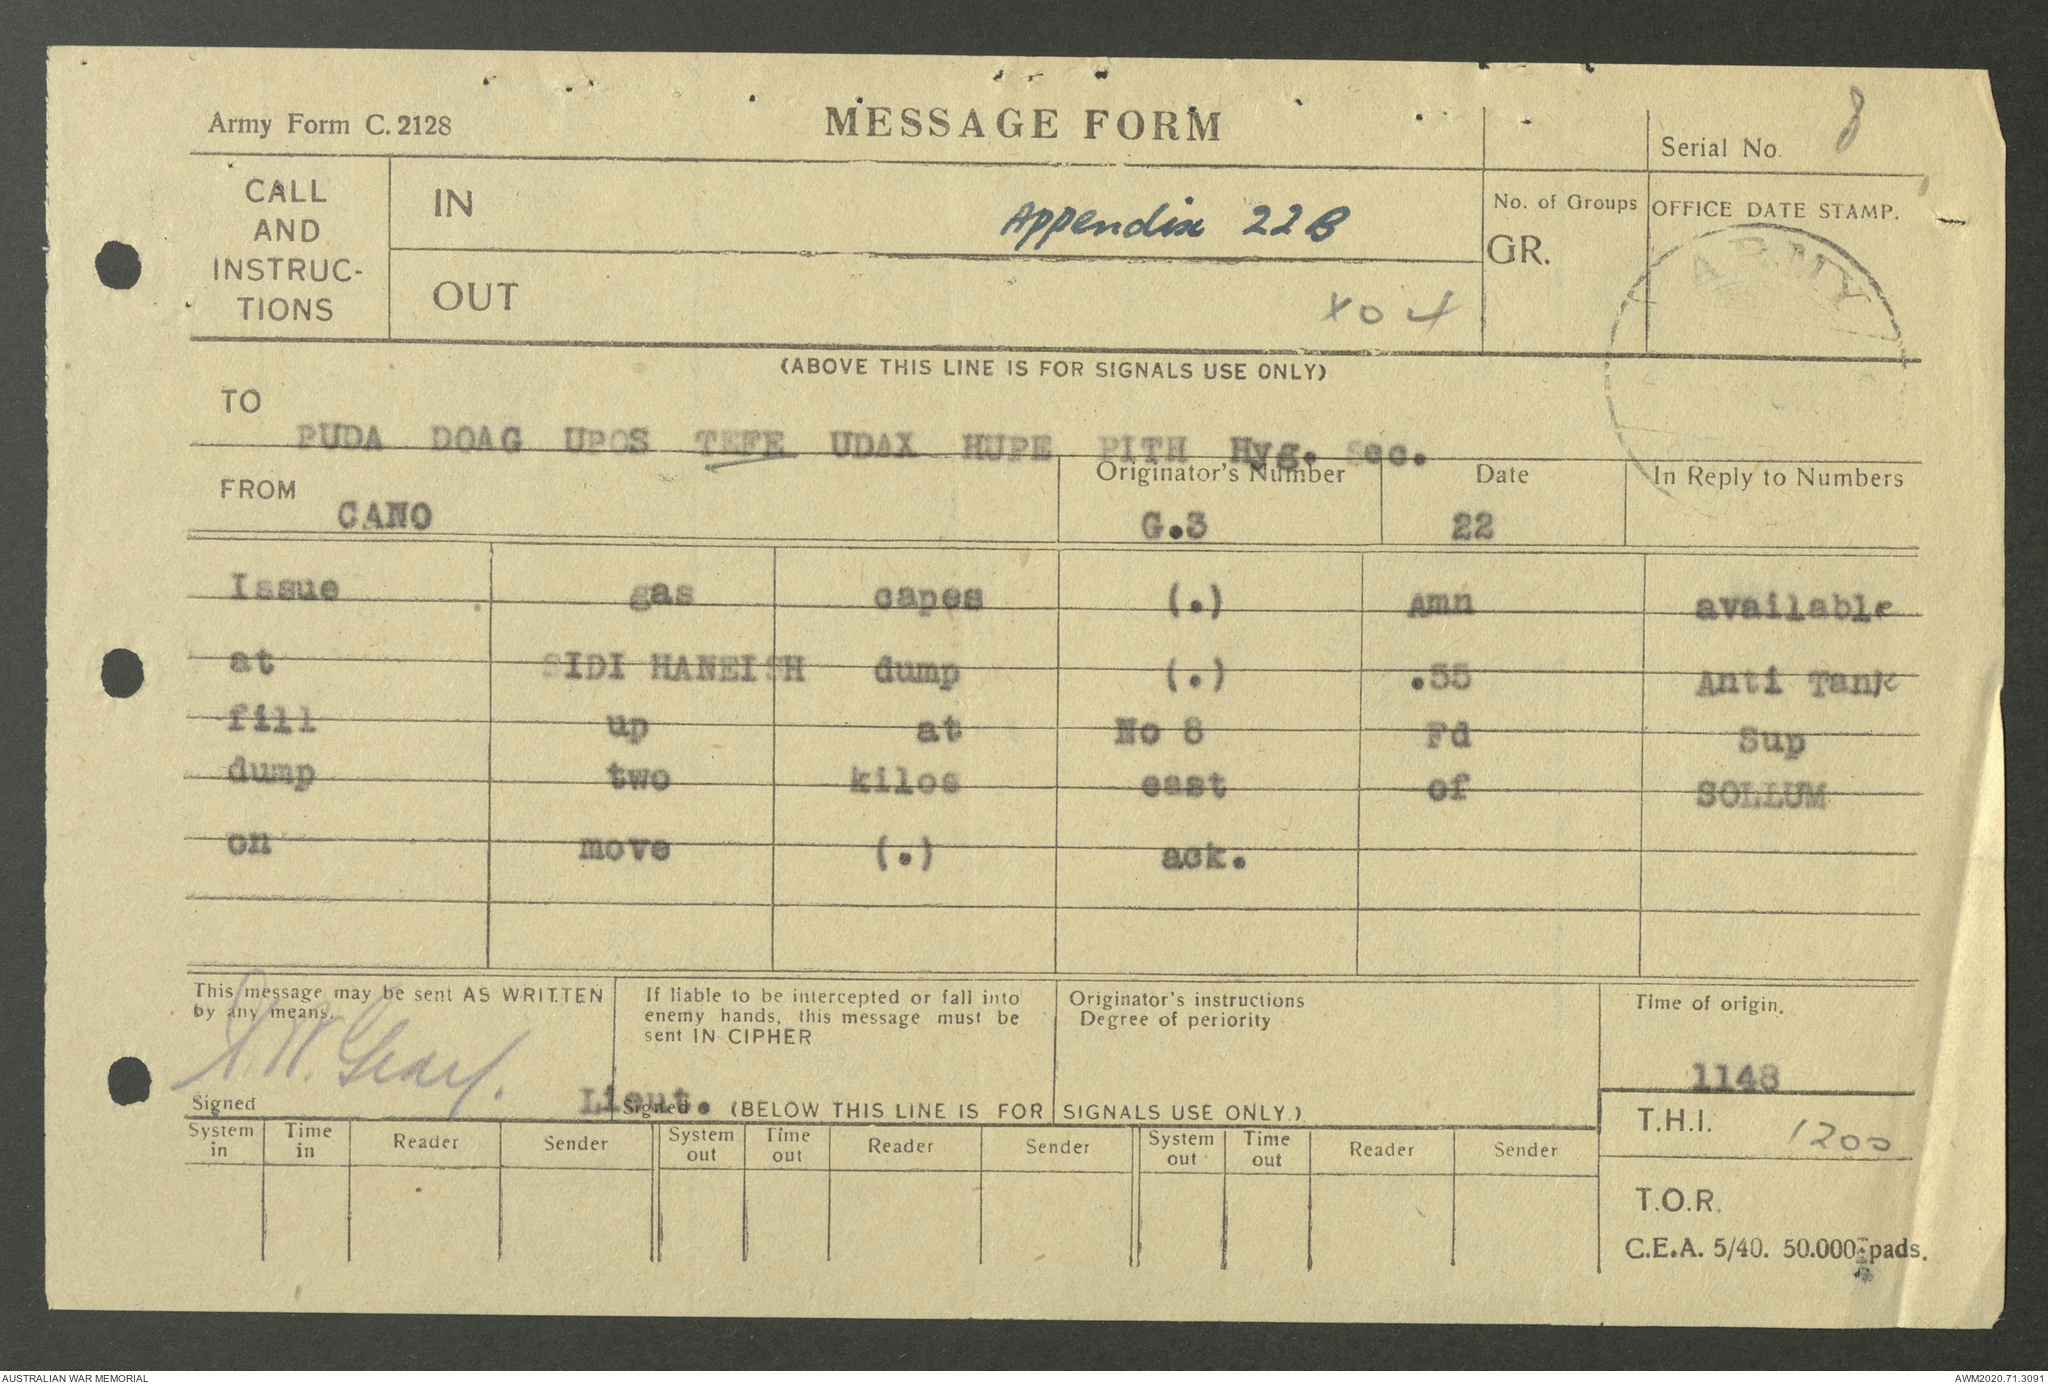 Army Form C. 2128
MESSAGE FORM
Serial No. 8
CALL AND INSTRUC-TIONS
IN
Appendix 22B
No. of Groups
GR.
OFFICE DATE STAMP.
ARMY
OUT
(ABOVE THIS LINE IS FOR SIGNALS USE ONLY)
TO
PUDA DOAG UPOS TEFE UDAX HUPE PITH Hyg. Sec.
FROM
CANO
Originator's Number
G.3
Date
22
In Reply to Numbers
Issue gas capes (.) Amn available
at SIDI HANEISH dump (.) .55 Anti Tank
fill up at No 8 Fd Sup
dump two kilos east of SOLLUM
on move (.) ack.
This message may be sent AS WRITTEN
by any means.
If liable to be intercepted or fall into
enemy hands, this message must be
sent IN CIPHER
Originator's instructions
Degree of periority
Time of origin.
1148
Signed
Lieut.
Signed
(BELOW THIS LINE IS FOR SIGNALS USE ONLY.)
T.H.I. 1200
System in Time in Reader Sender System out Time out Reader Sender System out Time out Reader Sender
T.O.R.
C.E.A. 5/40. 50.000 pads.
AUSTRALIAN WAR MEMORIAL
AWM2020.71.3091